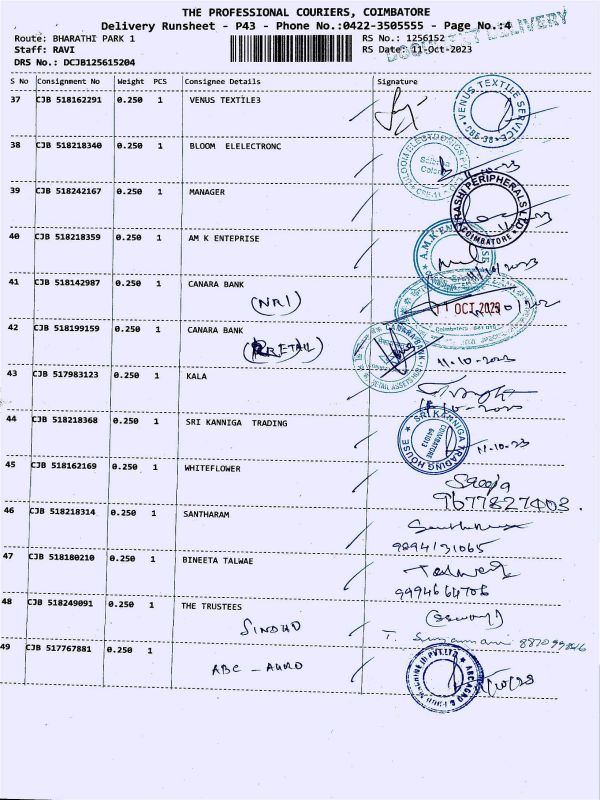 THE PROFESSIONAL COURIERS, COIMBATORE
Delivery Runsheet - P43 - Phone No.:0422-3505555 - Page No.:4
DELIVERY
Route: BHARATHI PARK 1
RS No.: 1256152
Staff: RAVI
RS Date: 11-Oct-2023
DRS No.: DCJB125615204
S No Consignment No Weight PCS Consignee Details Signature
37 CJB 518162291 0.250 1 VENUS TEXTILE3
VENUS TEXTILE SERVICE
CBE-38
38 CJB 518218340 0.250 1 BLOOM ELELECTRONC
39 CJB 518242167 0.250 1 MANAGER
RASHI PERIPHERALS LTD
COIMBATORE
40 CJB 518218359 0.250 1 AM K ENTEPRISE
11/10/2023
41 CJB 518142987 0.250 1 CANARA BANK
(NRI)
11 OCT 2023
42 CJB 518199159 0.250 1 CANARA BANK
(RETAIL)
CANARA BANK
RETAIL ASSETS HUB
11-10-2023
43 CJB 517983123 0.250 1 KALA
11-10-2023
44 CJB 518218368 0.250 1 SRI KANNIGA TRADING
SRI KANNIGA TRADING HOUSE
COIMBATORE
641013
11-10-23
45 CJB 518162169 0.250 1 WHITEFLOWER
Saroja
9677827403.
46 CJB 518218314 0.250 1 SANTHARAM
9894131065
47 CJB 518180210 0.250 1 BINEETA TALWAE
Talwar
9994664706
48 CJB 518249091 0.250 1 THE TRUSTEES
SINDHU
49 CJB 517767881 0.250 1
ABC - AURO